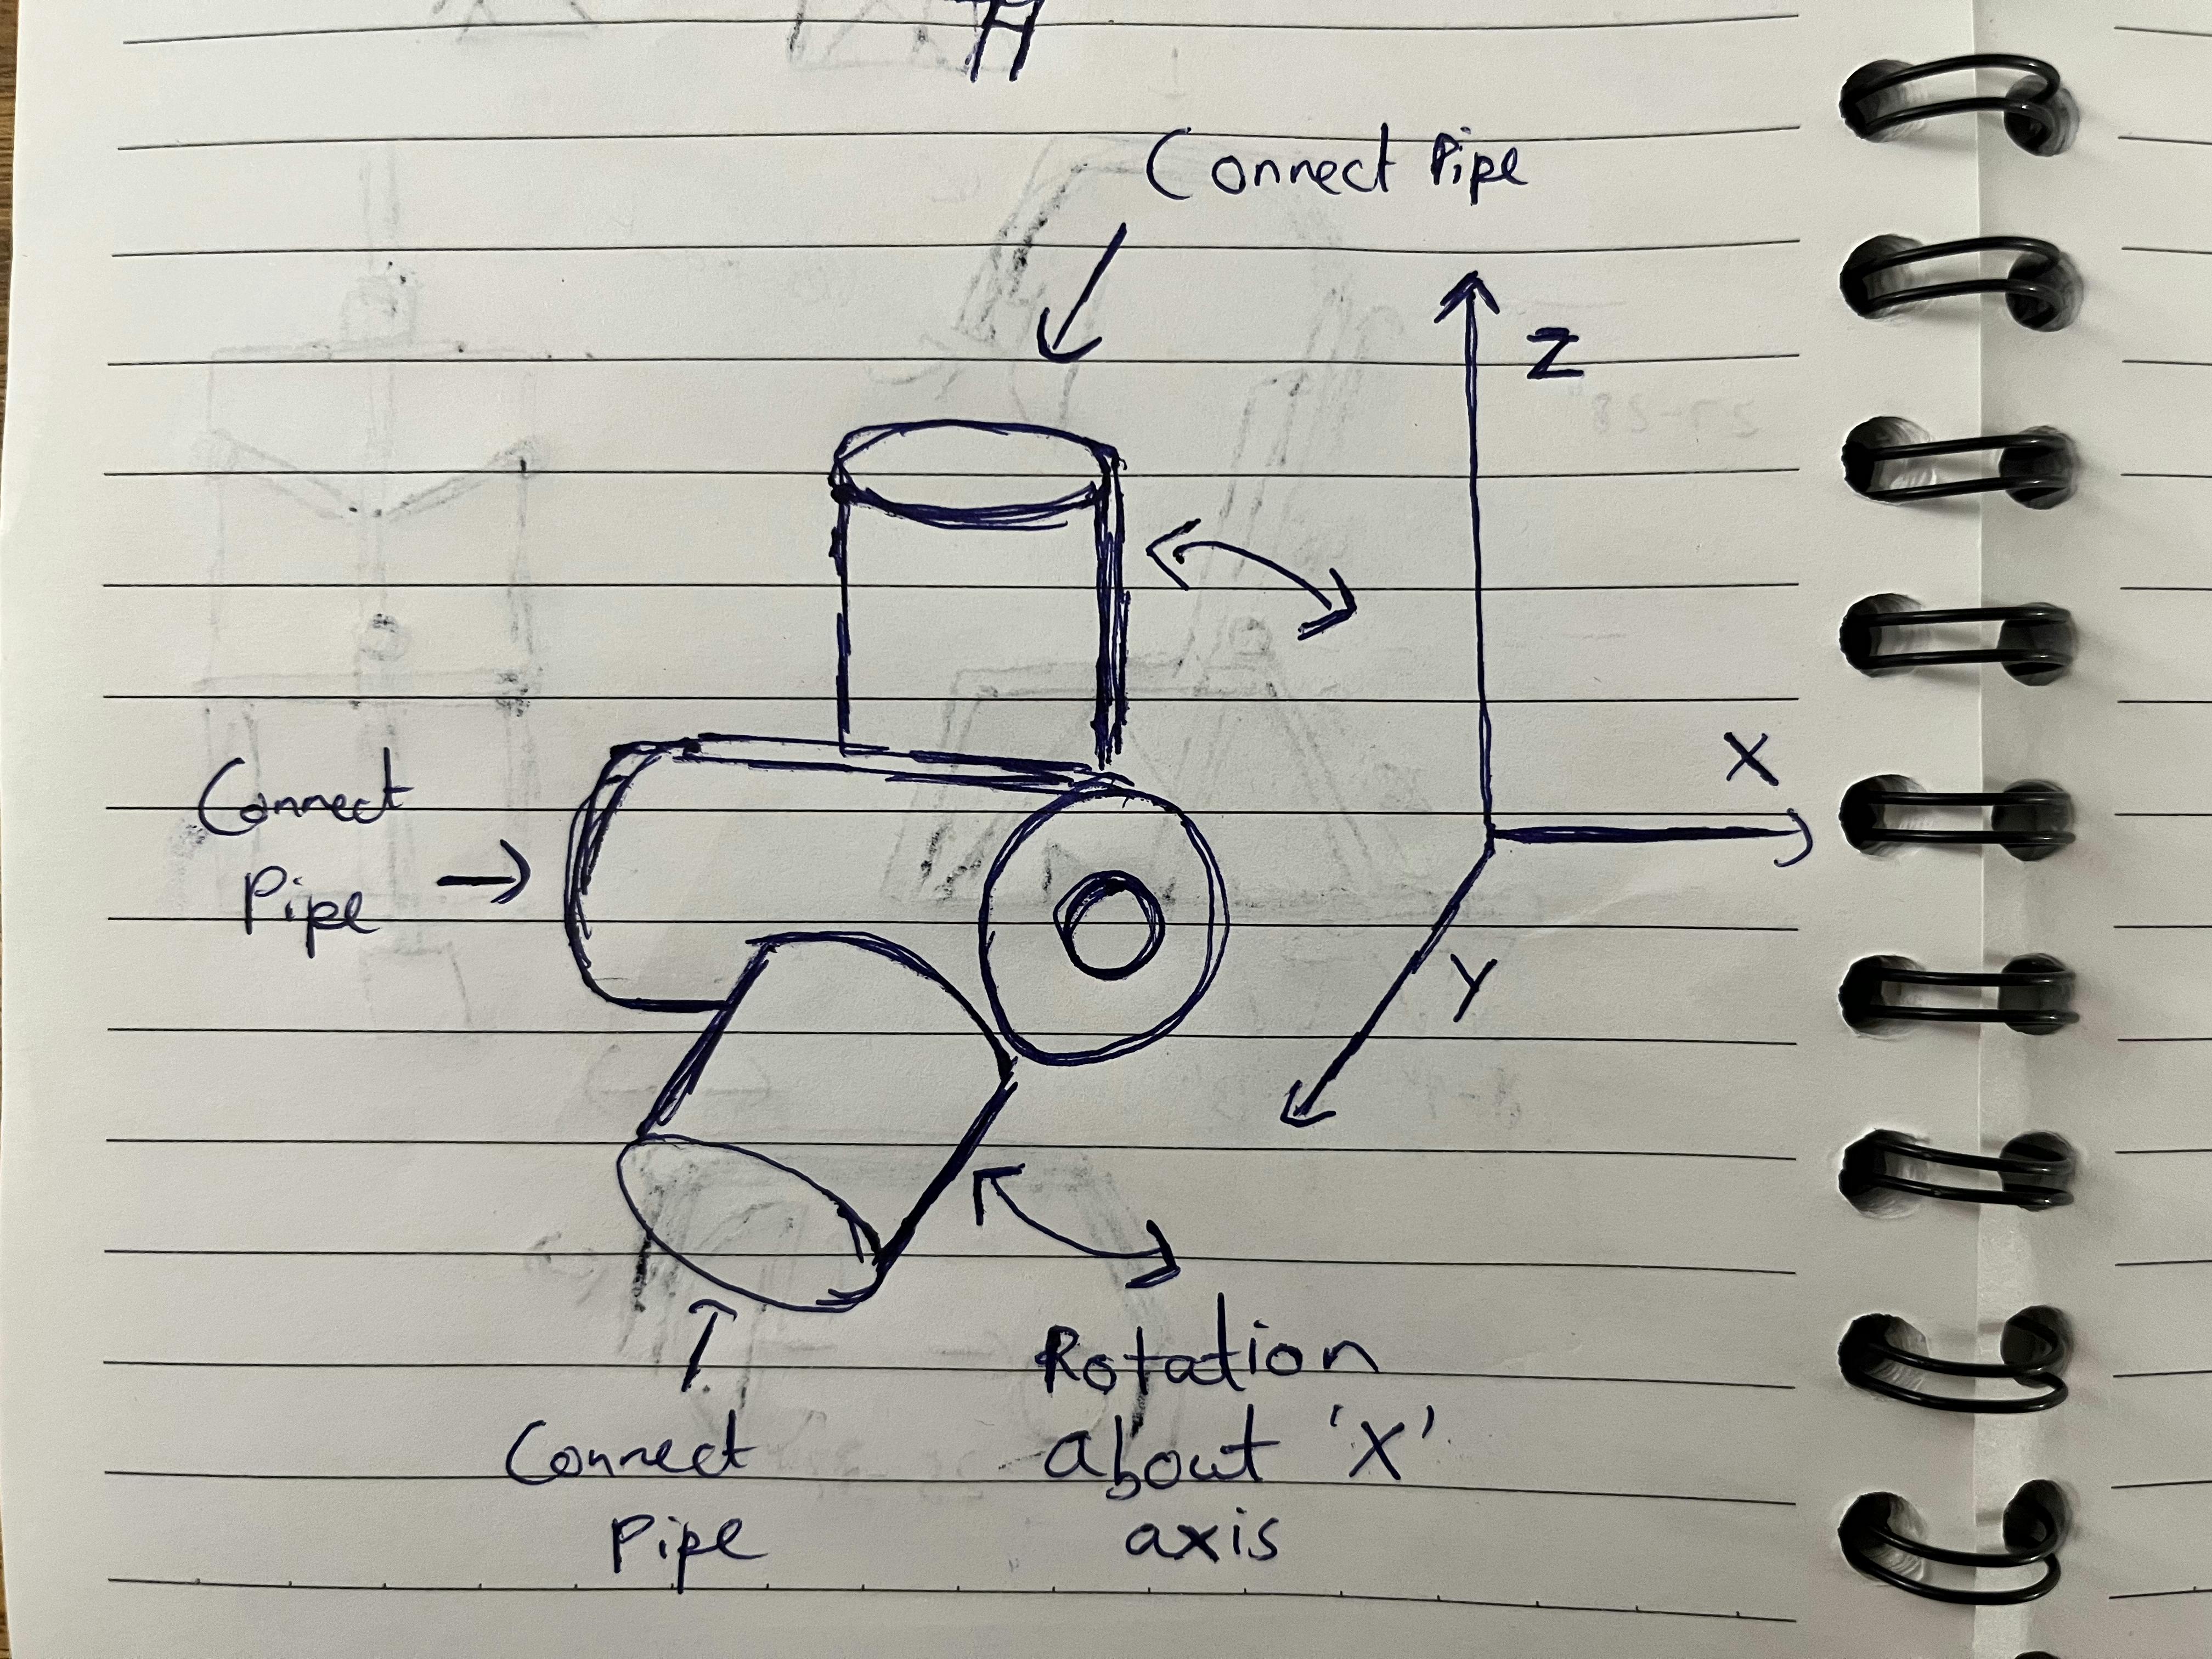 Connect Pipe
Z
X
Connect
Pipe
Y
Rotation
about 'X'
axis
Connect
Pipe